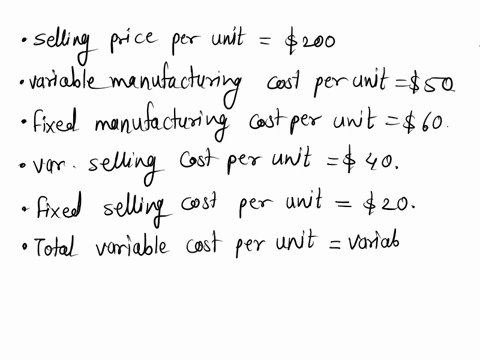 • selling price per unit = $200
• variable manufacturing cost per unit = $50
• fixed manufacturing cost per unit = $60.
• var. selling cost per unit = $40.
• fixed selling cost per unit = $20.
• Total variable cost per unit = variab